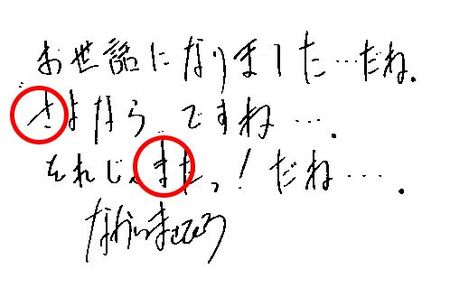 お世話になりました…だね.
さよなら ですね….
それじゃまたっ!だね….
なかいまさひろ